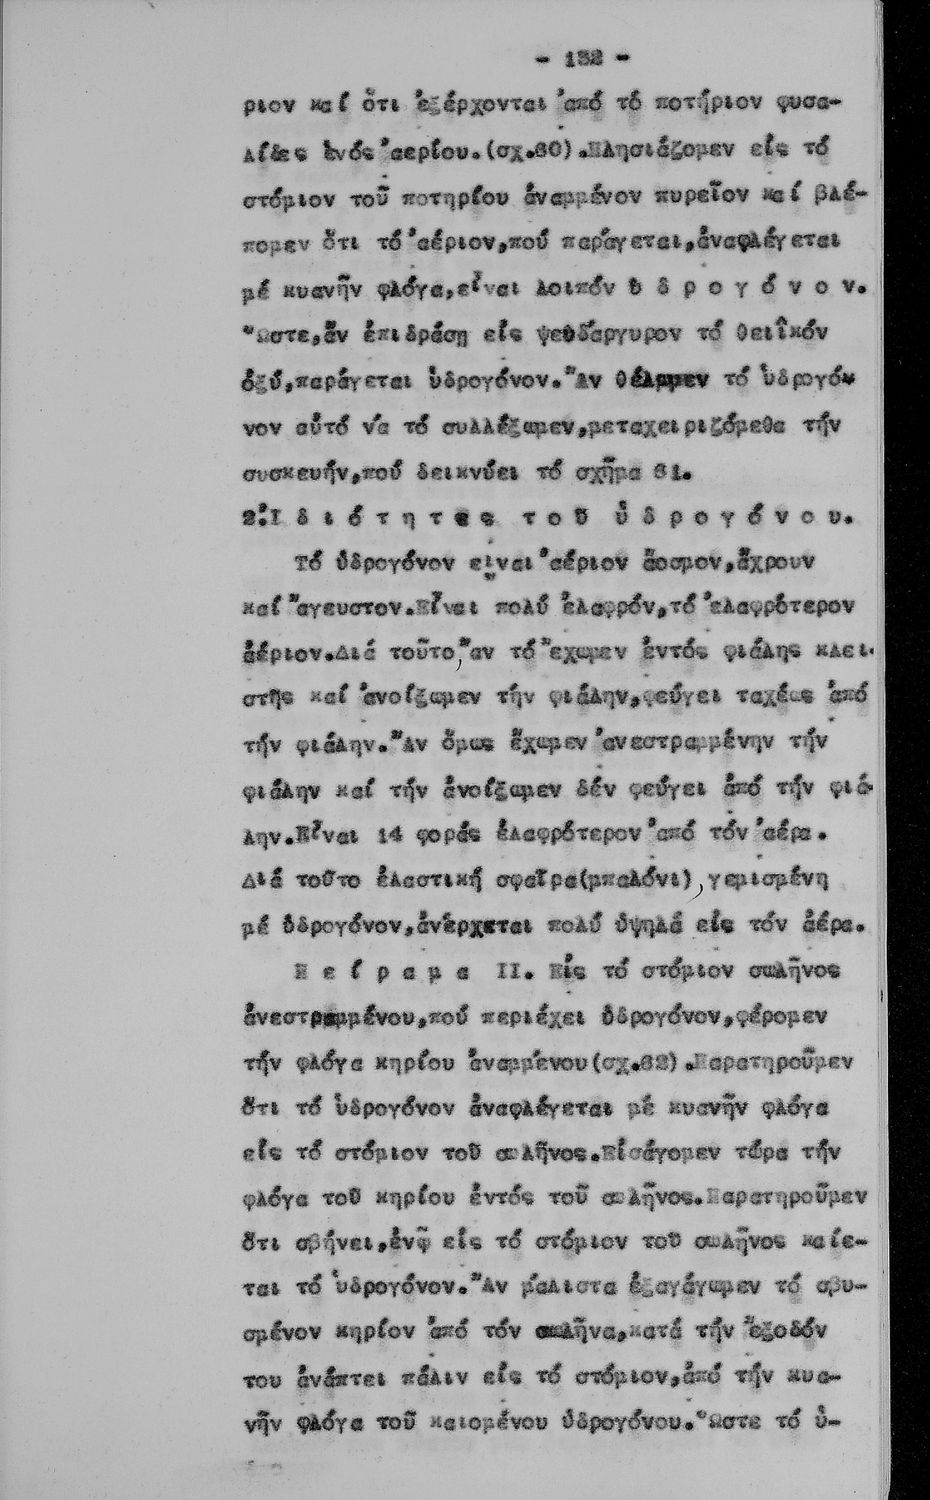 - 132 -
ριον καί ὅτι ἐξέρχονται ἀπό τό ποτήριον φυσα-
λίδες ἑνός ἀερίου.(σχ.60).Πλησιάζομεν εἰς τό
στόμιον τοῦ ποτηρίου ἀναμμένον πυρεῖον καί βλέ-
πομεν ὅτι τό ἀέριον,πού παράγεται,ἀναφλέγεται
μέ κυανῆν φλόγα,εἶναι λοιπόν ὑ δ ρ ο γ ό ν ο ν.
Ὥστε,ἄν ἐπιδράσῃ εἰς ψευδάργυρον τό θειϊκόν
ὀξύ,παράγεται ὑδρογόνον.Ἄν θέλωμεν τό ὑδρογό-
νον αὐτό νά τό συλλέξωμεν,μεταχειριζόμεθα τήν
συσκευήν,πού δεικνύει τό σχῆμα 61.
2.Ἰ δ ι ό τ η τ ε ς τ ο ῦ ὑ δ ρ ο γ ό ν ο υ.
Τό ὑδρογόνον εἶναι ἀέριον ἄοσμον,ἄχρουν
καί ἄγευστον.Εἶναι πολύ ἐλαφρόν,τό ἐλαφρότερον
ἀέριον.Διά τοῦτο,ἄν τό ἔχωμεν ἐντός φιάλης κλει-
στῆς καί ἀνοίξωμεν τήν φιάλην,φεύγει ταχέως ἀπό
τήν φιάλην.Ἄν ὅμως ἔχωμεν ἀνεστραμμένην τήν
φιάλην καί τήν ἀνοίξωμεν δέν φεύγει ἀπό τήν φιά-
λην.Εἶναι 14 φοράς ἐλαφρότερον ἀπό τόν ἀέρα.
Διά τοῦτο ἐλαστική σφαῖρα(μπαλόνι),γεμισμένη
μέ ὑδρογόνον,ἀνέρχεται πολύ ὑψηλά εἰς τόν ἀέρα.
Π ε ί ρ α μ α II. Εἰς τό στόμιον σωλῆνος
ἀνεστραμμένου,πού περιέχει ὑδρογόνον,φέρομεν
τήν φλόγα κηρίου ἀναμμένου(σχ.62).Παρατηροῦμεν
ὅτι τό ὑδρογόνον ἀναφλέγεται μέ κυανῆν φλόγα
εἰς τό στόμιον τοῦ σωλῆνος.Εἰσάγομεν τώρα τήν
φλόγα τοῦ κηρίου ἐντός τοῦ σωλῆνος.Παρατηροῦμεν
ὅτι σβήνει,ἐνῷ εἰς τό στόμιον τοῦ σωλῆνος καίε-
ται τό ὑδρογόνον.Ἄν μάλιστα ἐξαγάγωμεν τό σβυ-
σμένον κηρίον ἀπό τόν σωλῆνα,κατά τήν ἔξοδόν
του ἀνάπτει πάλιν εἰς τό στόμιον,ἀπό τήν κυα-
νῆν φλόγα τοῦ καιομένου ὑδρογόνου.Ὥστε τό ὑ-